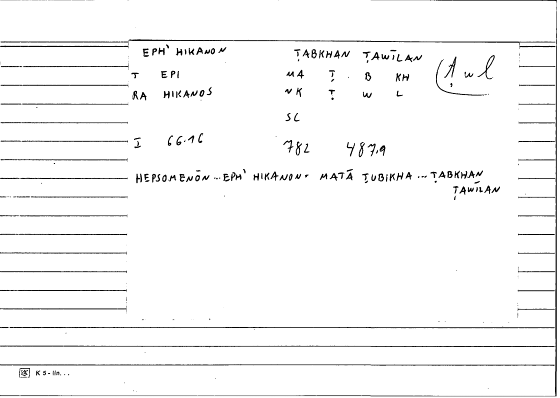 EPH' HIKANON ṬABKHAN ṬAWĪLAN
T EPI MA Ṭ B KH (ṭwl
RA HIKANOS NK Ṭ W L
SC
I 66.16 782 487.9
HEPSOMENŌN ... EPH' HIKANON· MATĀ ṬUBIKHA ... ṬABKHAN
ṬAWĪLAN
K 5 - lin. . .